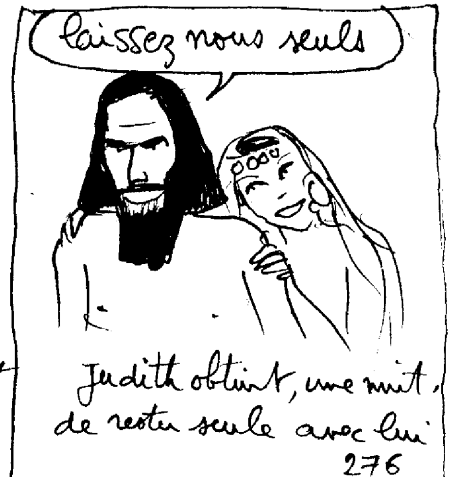 laissez nous seuls
Judith obtint, une nuit,
de rester seule avec lui
276